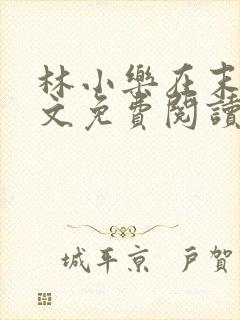 林小樂在末
文免費閱讀
城平京 戶賀